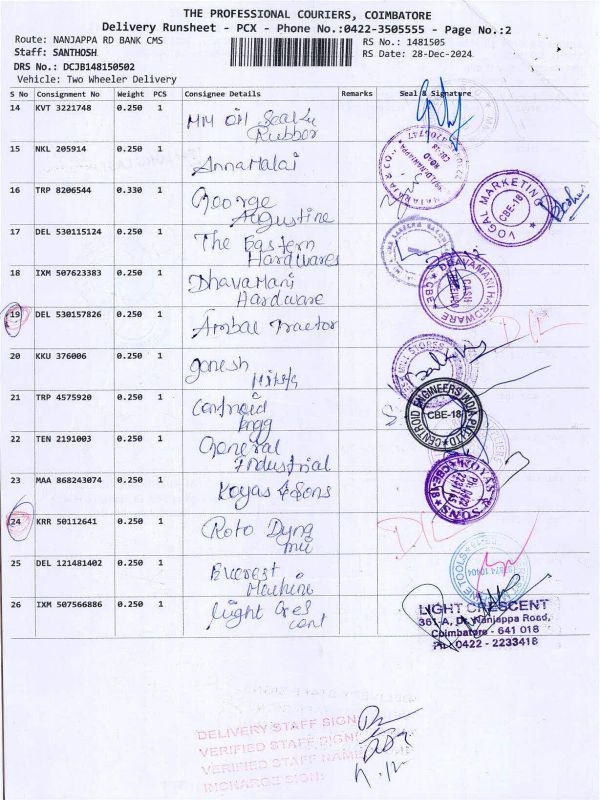 THE PROFESSIONAL COURIERS, COIMBATORE
Delivery Runsheet - PCX - Phone No.:0422-3505555 - Page No.:2
Route: NANJAPPA RD BANK CMS
RS No.: 1481505
Staff: SANTHOSH
RS Date: 28-Dec-2024
DRS No.: DCJB148150502
Vehicle: Two Wheeler Delivery
S No Consignment No Weight PCS Consignee Details Remarks Seal & Signature
14 KVT 3221748 0.250 1 MM Oil Seal &
Rubber
15 NKL 205914 0.250 1 Annamalai
16 TRP 8206544 0.330 1 George
Augustine
VOGAL MARKETING
CBE-18
17 DEL 530115124 0.250 1 The Eastern
Hardwares
18 IXM 507623383 0.250 1 Dhavamani
Hardware
DHAVAMANI HARDWARE
CBE
CASH
19 DEL 530157826 0.250 1 Ambal Tractor
DL
20 KKU 376006 0.250 1 Ganesh
Mills
21 TRP 4575920 0.250 1 Centroid
Engg
CENTROID ENGINEERS INDIA PVT LTD
CBE-18
22 TEN 2191003 0.250 1 General
Industrial
23 MAA 868243074 0.250 1 Koyas & Sons
KOYAS & SONS
CBE-18
24 KRR 50112641 0.250 1 Roto Dyna
DL
25 DEL 121481402 0.250 1 Everest
Machine
26 IXM 507566886 0.250 1 Light Cres
cent
LIGHT CRESCENT
361-A, Dr. Nanjappa Road,
Coimbatore - 641 018
Ph : 0422 - 2233418
DELIVERY STAFF SIGN:
VERIFIED STAFF SIGN:
VERIFIED STAFF NAME:
INCHARGE SIGN: